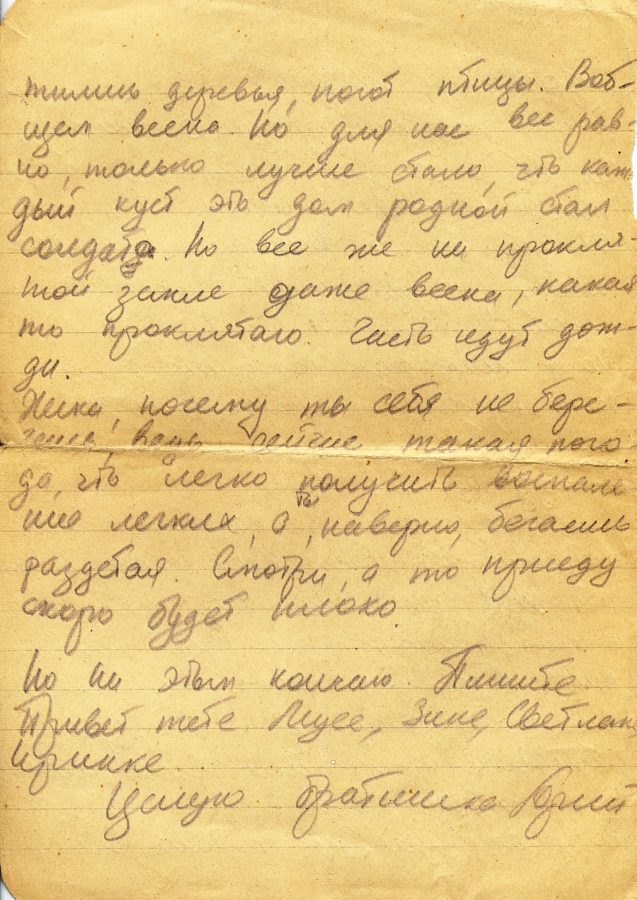 тились деревья, поют птицы. Вооб-
щем весна. Но для нас все рав-
но, только лучше стало, что каж
дый куст это дом родной стал
солдата. Но все же на прокля-
той земле даже весна, какая
то проклятаю. Часто идут дож-
ди.
почему ты себя не бере-
жешь, ведь сейчас такая пого
да, что легко получить воспале
ние легких, а ты, наверно, бегаешь
раздетая. Смотри, а то приеду
скоро будет плохо
Но на этом кончаю. Пишите.
Привет тете Люсе, Зине, Светлане
Иринке.
Целую братишка Юрий